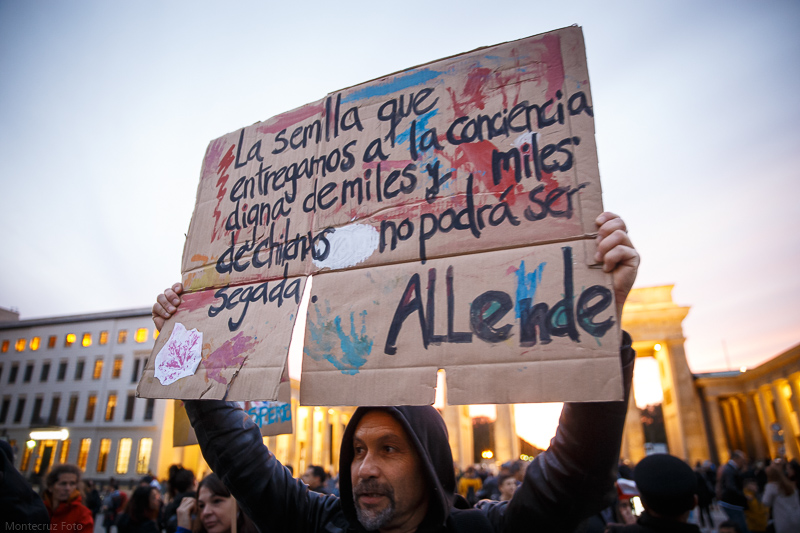 La semilla que
entregamos a la conciencia
digna de miles y miles
de chilenos no podrá ser
segada.
ALLende
Montecruz Foto